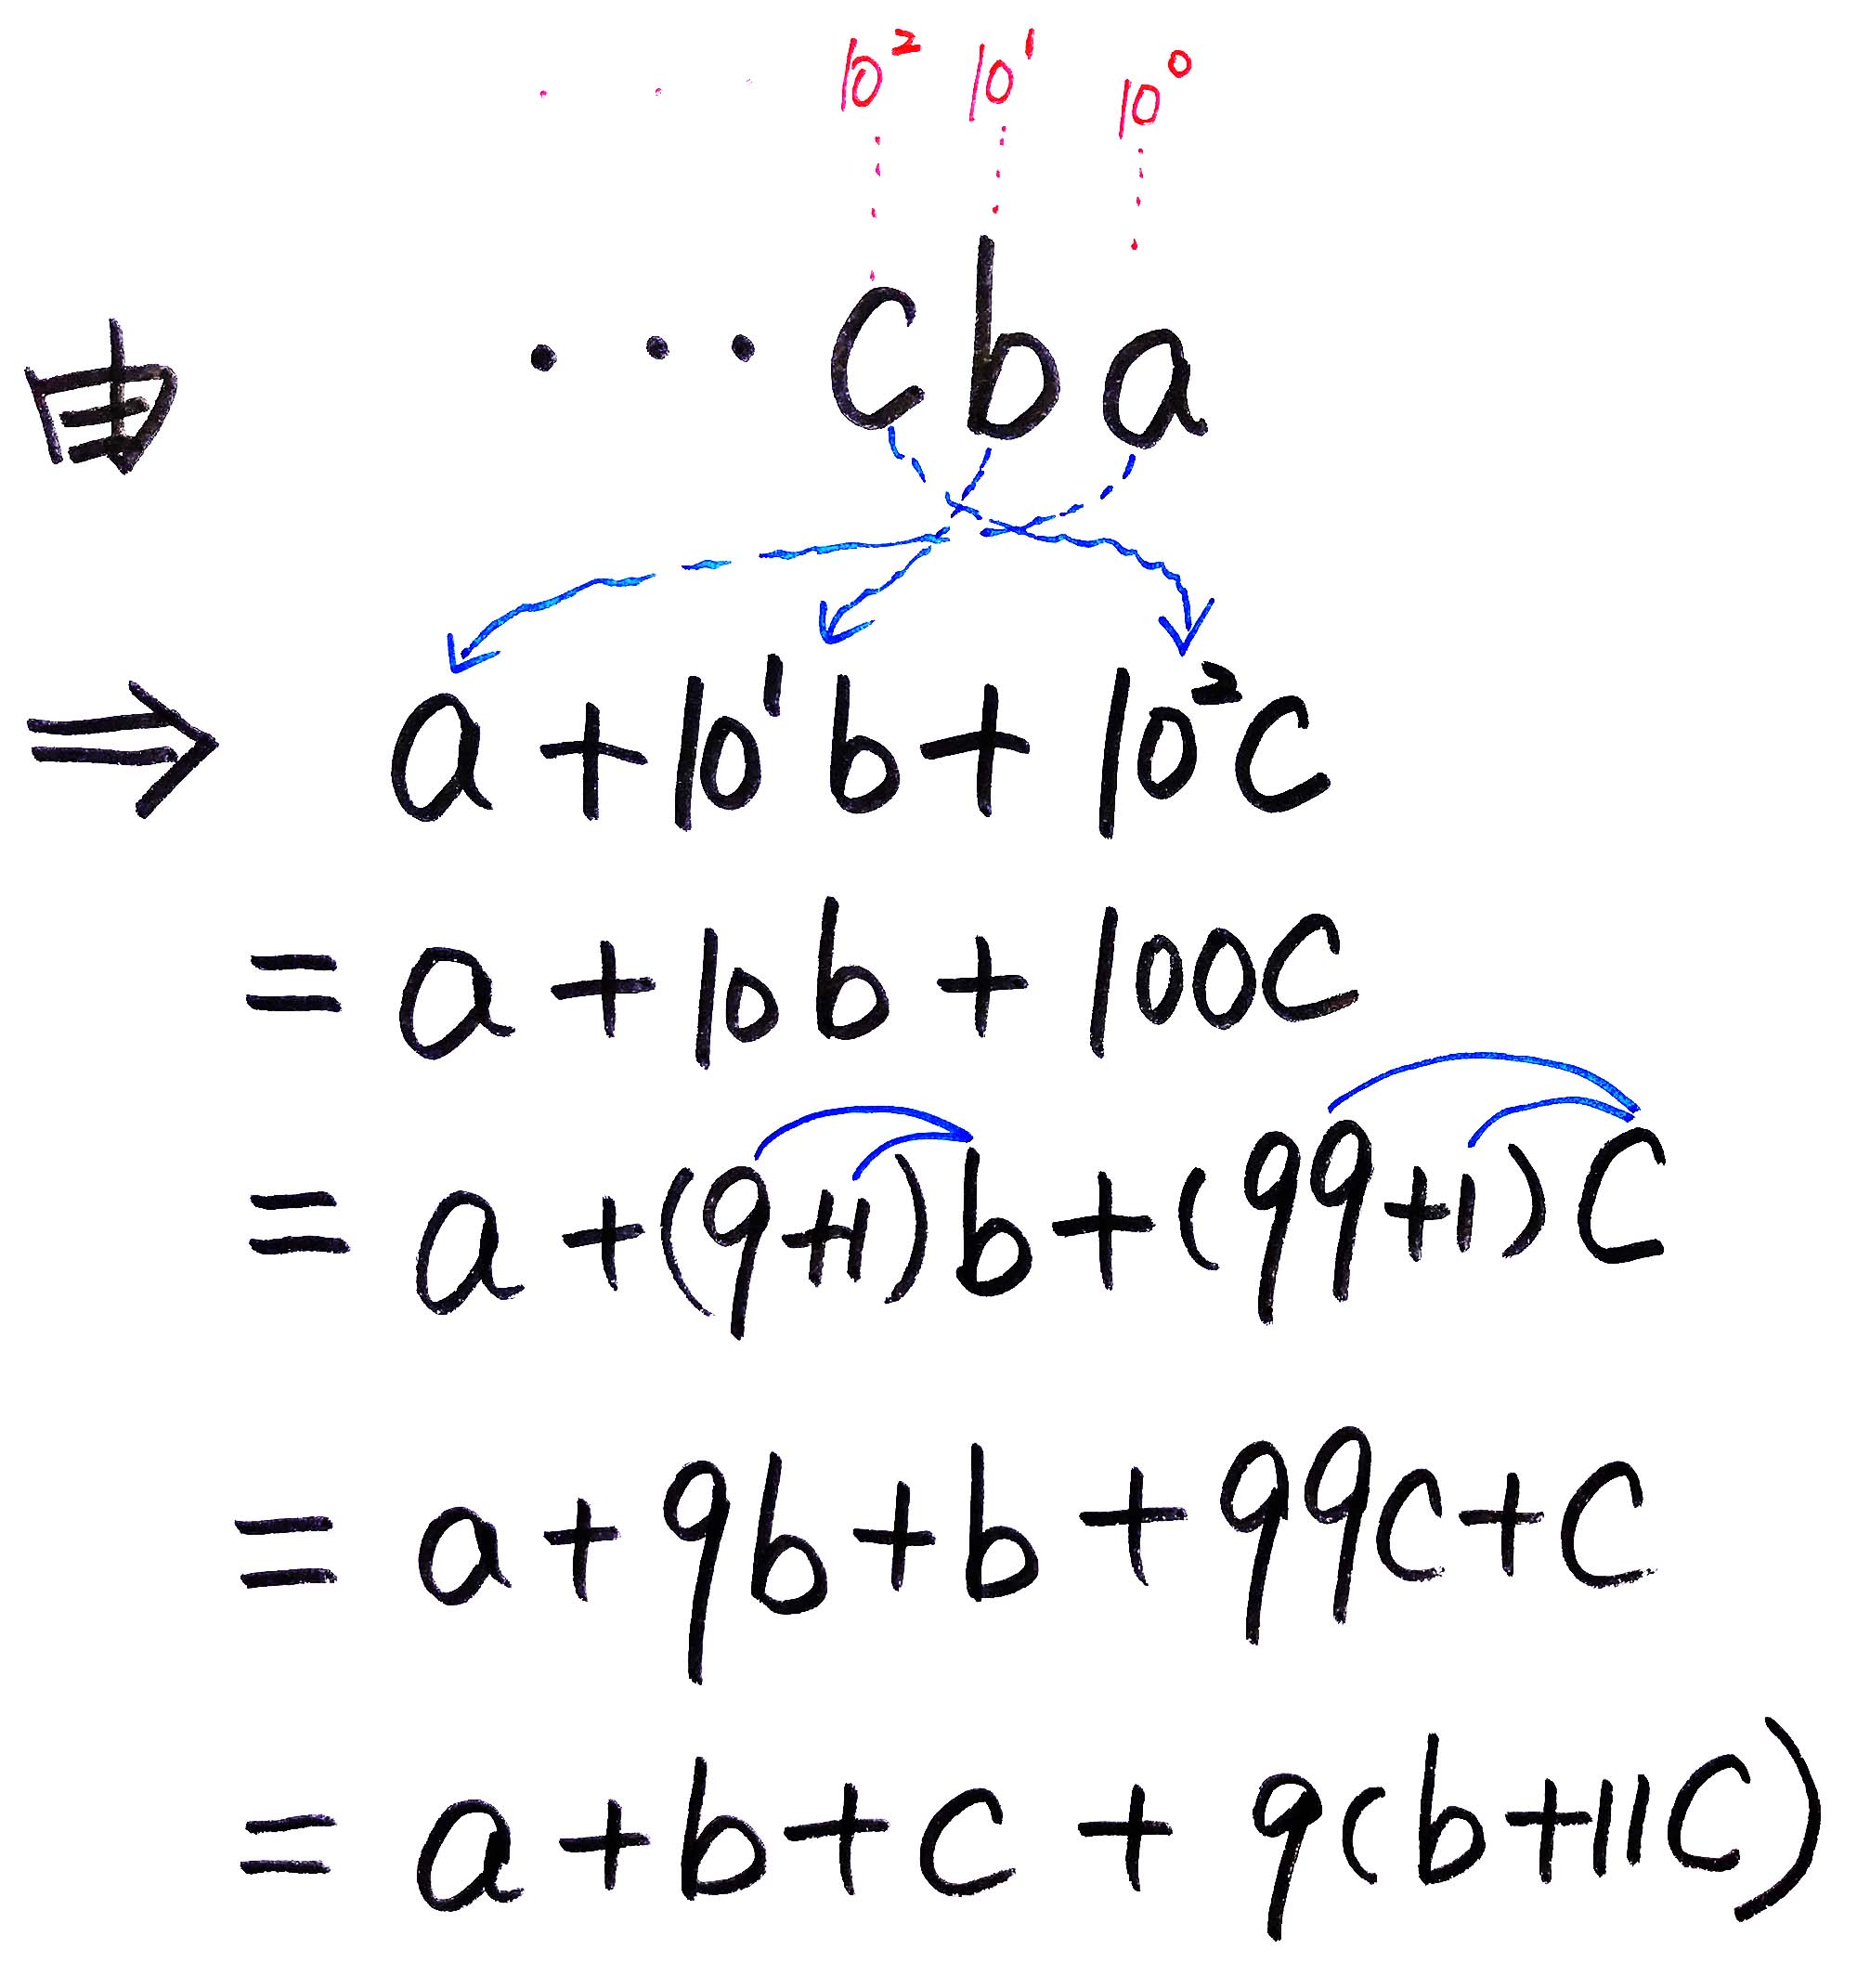 10² 10¹ 10⁰
由 ··· c b a
⇒ a + 10¹b + 10²c
= a + 10b + 100c
= a + (9+1)b + (99+1)c
= a + 9b + b + 99c + c
= a + b + c + 9(b+11c)